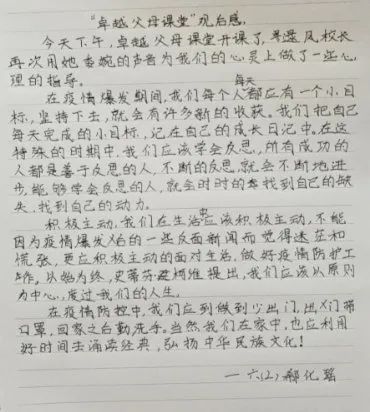 “卓越父母课堂”观后感.
今天下午,卓越父母课堂开课了,粤遥凤校长
再次用她委婉的声音为我们的心灵上做了一些心
理的指导。
每天
在疫情爆发期间,我们每个人都应有一个小目
标,坚持下去,就会有许多新的收获。我们把自己
每天完成的小目标,记在自己的成长日记中。在这
特殊的时期中,我们应该学会反思,所有成功的
人都是善于反思的人,不断的反思,就会不断地进
步,能够学会反思的人,就会时时的去找到自己的缺
失,找到自己的动力。
积极主动,我们在生活中应该积极主动,不能
因为疫情爆发的一些反面新闻而觉得迷茫和
慌张,更应积极主动的面对生活,做好疫情防护工
作。以始为终,史蒂芬·避柯维提出,我们应该以原则
为中心,度过我们的人生。
在疫情防控中,我们应到做到少出门,出门带
口罩,回家之后勤洗手。当然,我们在家中,也应利用
好时间去诵读经典,弘扬中华民族文化!
一六(2)郝化瑶